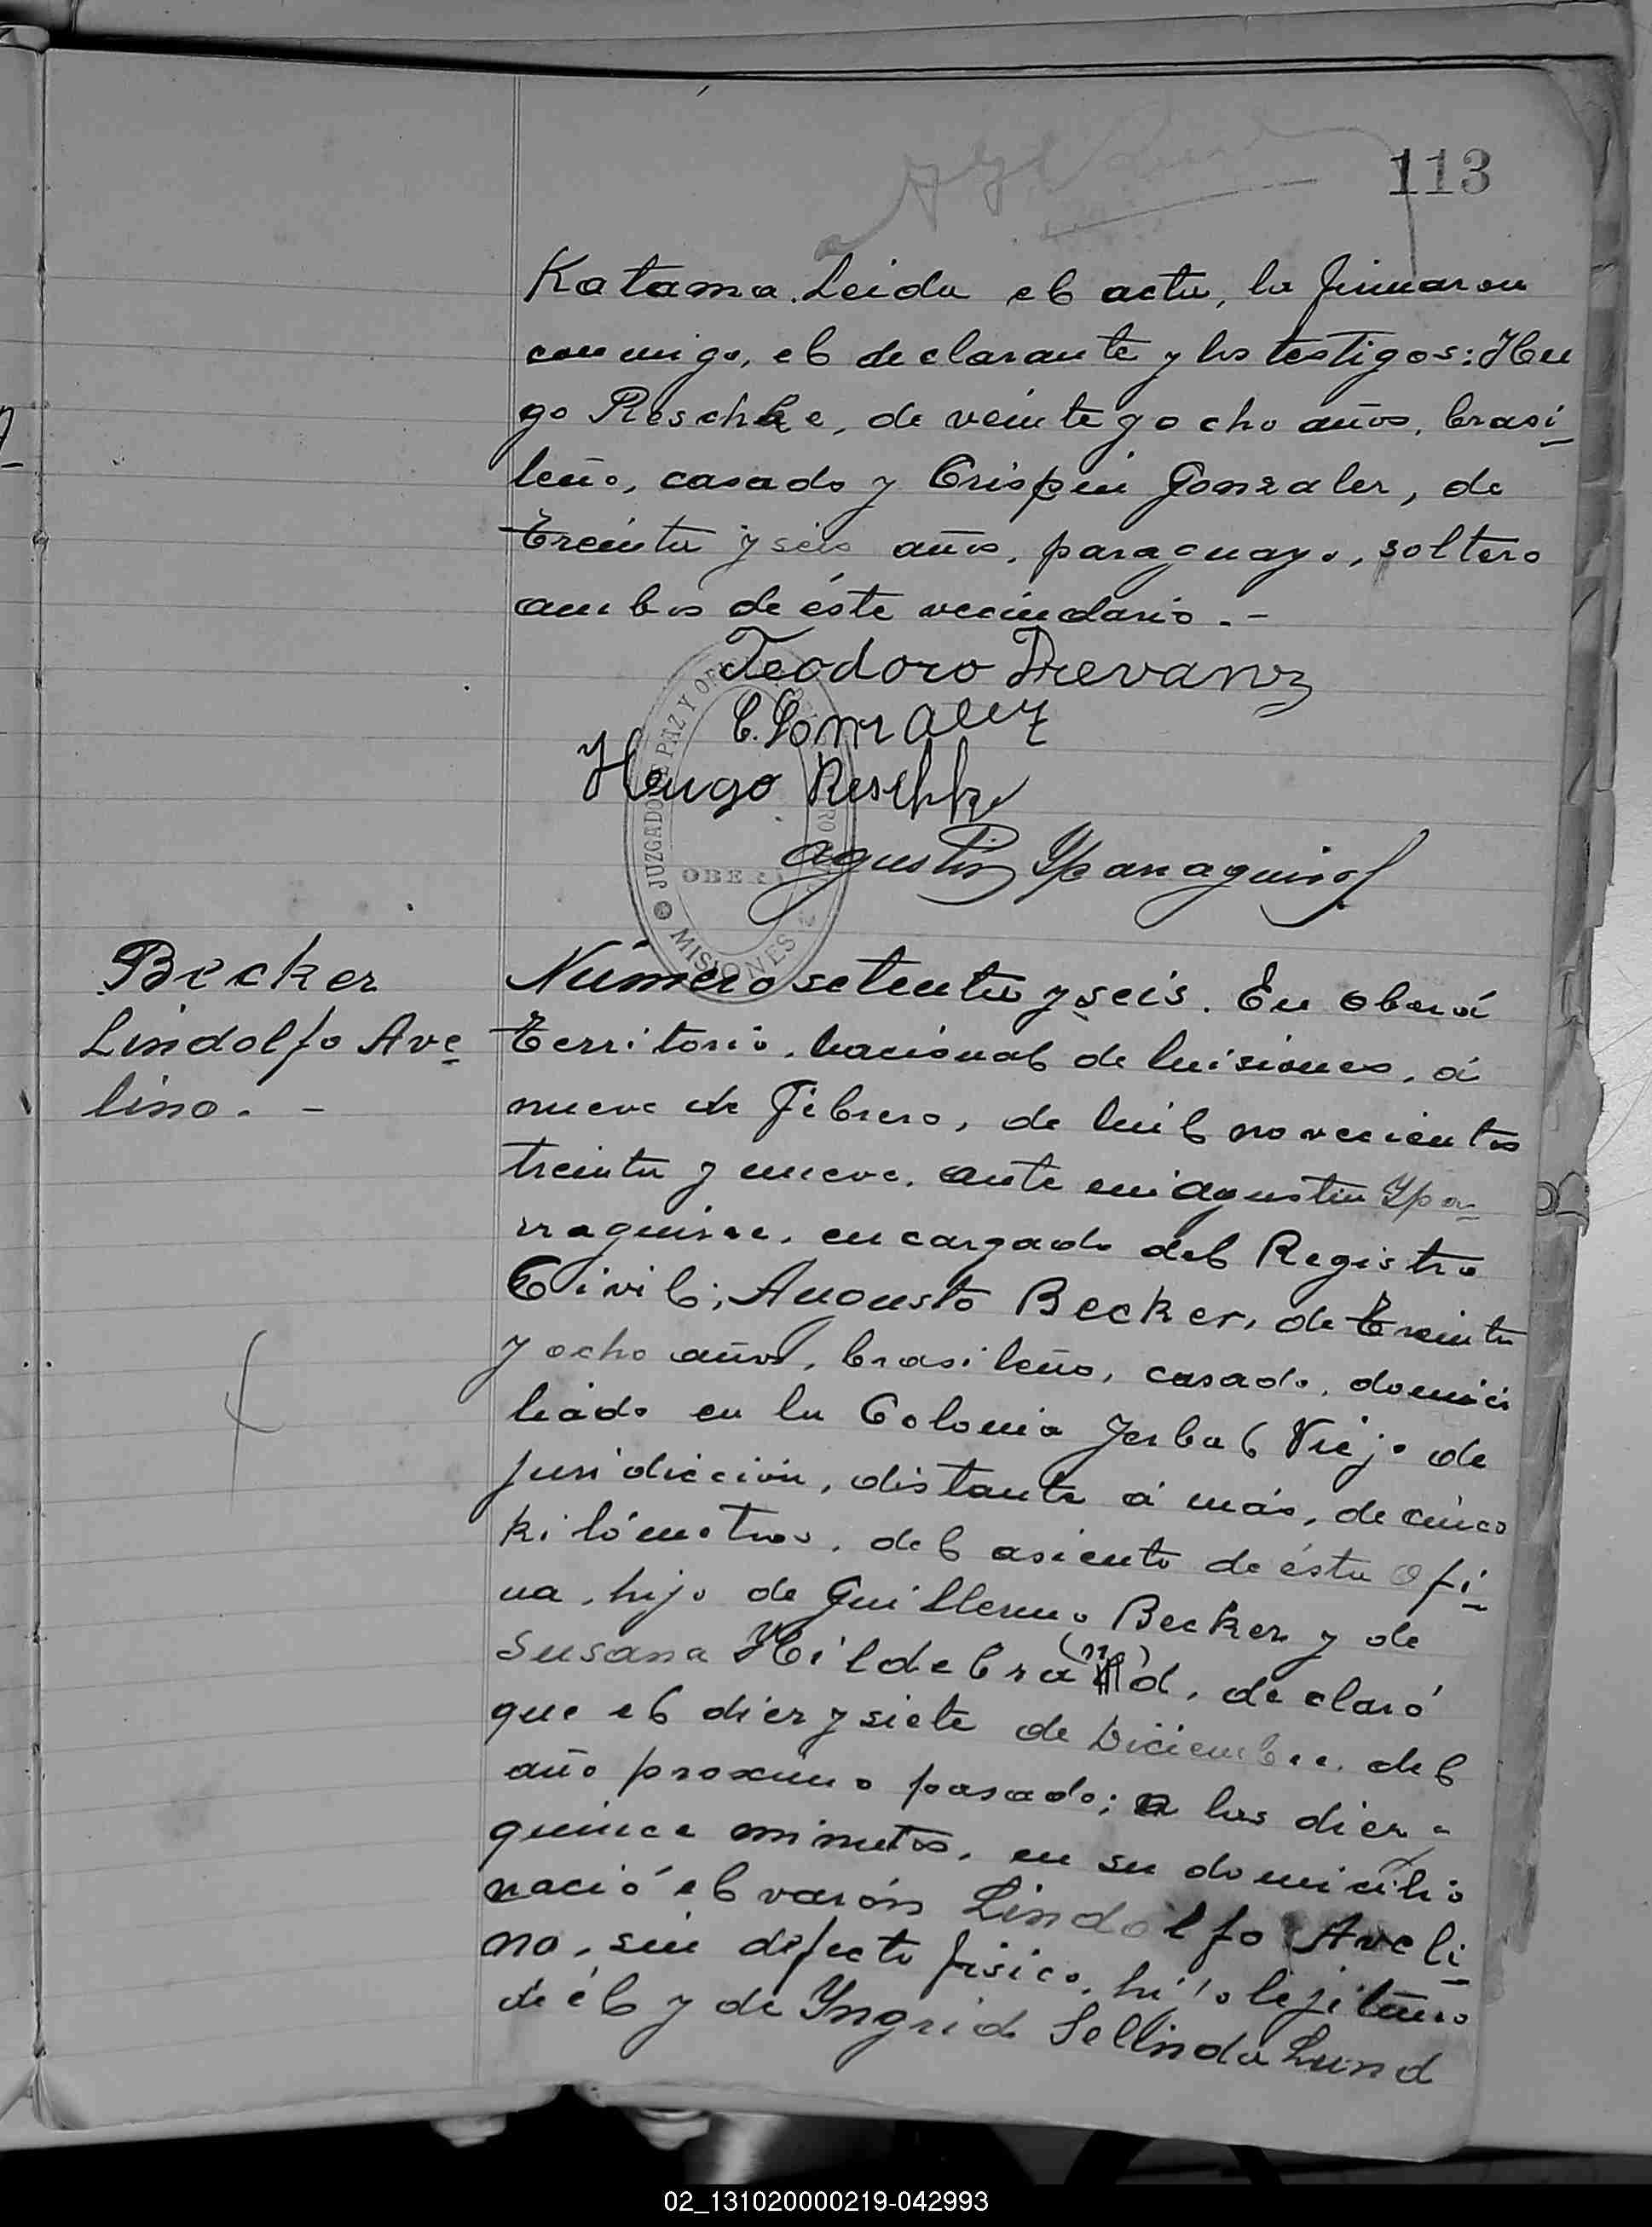 113
Katama. Leida el acta, la firmaron
conmigo, el declarante y los testigos: Hu
go Reschke, de veinte y ocho años, brasi
leño, casado y Crispin Gonzalez, de
treinta y seis años, paraguayo, soltero
ambos de éste vecindario. -
Teodoro
C. Gonzalez
Hugo Reschke
Agustin Yparraguirre
JUZGADO DE PAZ Y
OBERA
MISIONES
Becker
Lindolfo Ave
lino. -
Número setenta y seis. En Oberá
Territorio, Nacional de Misiones, á
nueve de Febrero, de mil novecientos
treinta y nueve, ante mi Agustin Ypa
rraguirre, encargado del Registro
Civil; Augusto Becker, de treinta
y ocho años, brasileño, casado, domici
liado en la Colonia Yerbal Viejo de
juridicción, distante á más, de cinco
kilómetros, del asiento de ésta Ofi
na, hijo de Guillermo Becker y de
Susana Hildebra(n)d, declaró
que el diez y siete de Diciembre, del
año proximo pasado; a las diez
quince minutos, en su domicilio
nació el varón Lindolfo Aveli
no, sin defecto fisico, hijo lejitimo
de él y de Yngrid Sellinda Lund
02_131020000219-042993